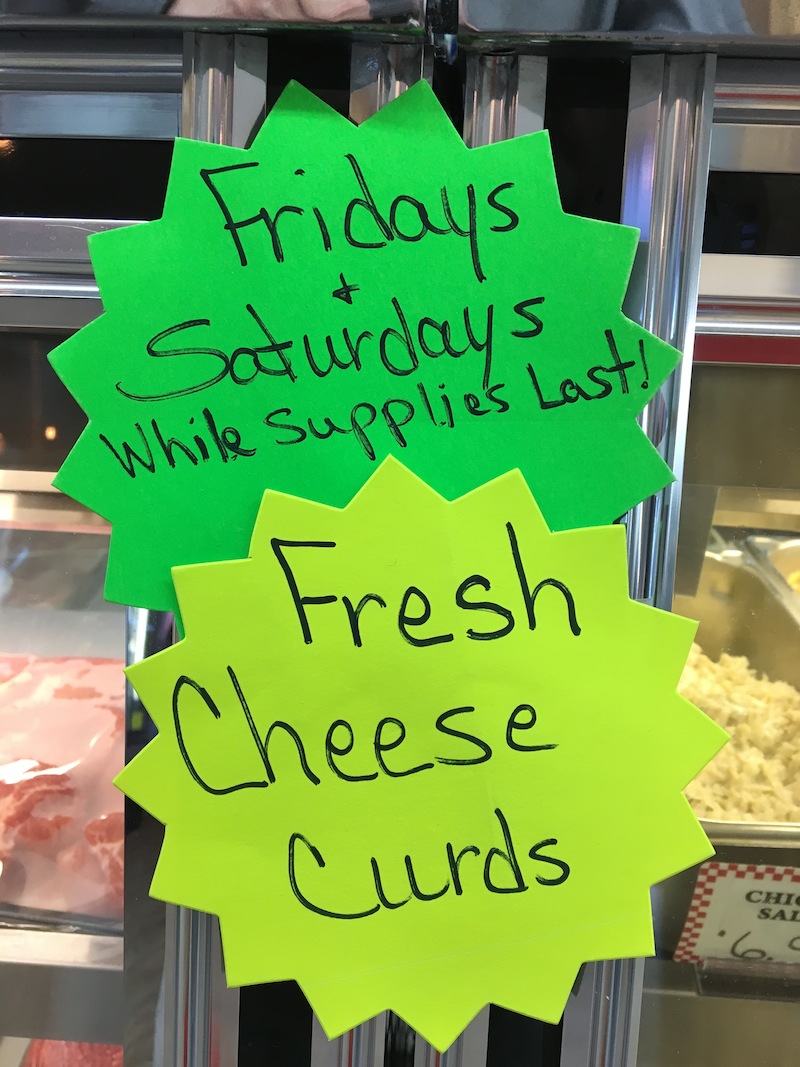 Fridays
+
Saturdays
While Supplies Last!
Fresh
Cheese
Curds